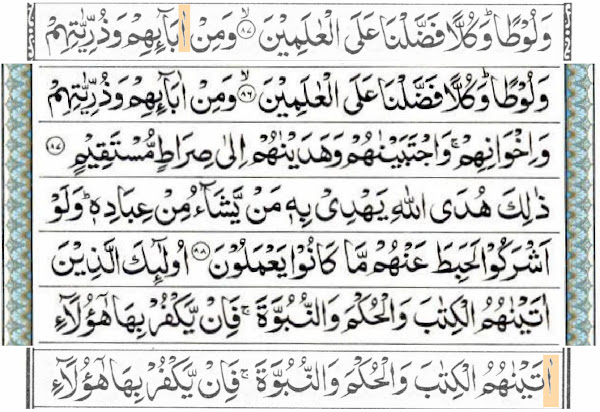 وَلُوْطًاؕ وَكُلًّا فَضَّلْنَا عَلَى الْعٰلَمِيْنَۙ ۝۸۷ وَمِنْ اٰبَآئِهِمْ وَذُرِّيّٰتِهِمْ
وَلُوْطًاؕ وَكُلًّا فَضَّلْنَا عَلَى الْعٰلَمِيْنَۙ ۝۸۶ وَمِنْ اٰبَآئِهِمْ وَذُرِّيّٰتِهِمْ
وَاِخْوَانِهِمْۚ وَاجْتَبَيْنٰهُمْ وَهَدَيْنٰهُمْ اِلٰى صِرَاطٍ مُّسْتَقِيْمٍ ۝۸۷
ذٰلِكَ هُدَى اللّٰهِ يَهْدِىْ بِهٖ مَنْ يَّشَآءُ مِنْ عِبَادِهٖؕ وَلَوْ
اَشْرَكُوْا لَحَبِطَ عَنْهُمْ مَّا كَانُوْا يَعْمَلُوْنَ ۝۸۸ اُولٰٓئِكَ الَّذِيْنَ
اٰتَيْنٰهُمُ الْكِتٰبَ وَالْحُكْمَ وَالنُّبُوَّةَۚ فَاِنْ يَّكْفُرْ بِهَا هٰٓؤُلَآءِ
اٰتَيْنٰهُمُ الْكِتٰبَ وَالْحُكْمَ وَالنُّبُوَّةَۚ فَاِنْ يَّكْفُرْ بِهَا هٰٓؤُلَآءِ